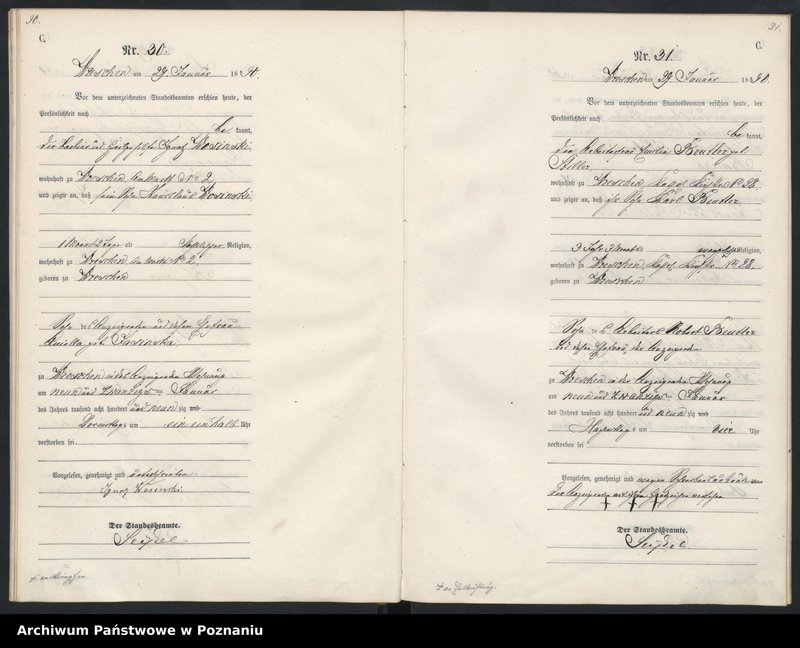 30.
C.
Nr. 30.
Wreschen am 29. Januar 1890.
Vor dem unterzeichneten Standesbeamten erschien heute, der
Persönlichkeit nach
be kannt,
der Barbier und Ignatz Wosinski
wohnhaft zu Wreschen am Markt No 2
und zeigte an, daß sein Sohn Wosinski
1 Monat 2 Tage alt Religion,
wohnhaft zu Wreschen am Markt No 2
geboren zu Wreschen
Sohn des Anzeigenden und dessen Ehefrau
geb.
zu Wreschen in des Anzeigenden Wohnung
am neun und zwanzigsten Januar
des Jahres tausend acht hundert und neun zig
Vormittags um ein einhalb Uhr
verstorben sei
Vorgelesen, genehmigt und unterschrieben
Ignatz Wosinski
Der Standesbeamte.
Seydel
31.
C.
Nr. 31.
Wreschen am 29. Januar 1890.
Vor dem unterzeichneten Standesbeamten erschien heute, der
Persönlichkeit nach
be kannt,
die Arbeiterfrau Emilie Beutler geb.
wohnhaft zu Wreschen No 28
und zeigte an, daß ihr Sohn Karl Beutler
3 Jahr 3 Monate evangelischer Religion,
wohnhaft zu Wreschen No 28.
geboren zu Wreschen
Sohn des Arbeiters Robert Beutler
und dessen Ehefrau, der Anzeigenden
zu Wreschen in der Anzeigenden Wohnung
am neun und zwanzigsten Januar
des Jahres tausend acht hundert und neun zig
um vier Uhr
verstorben sei
Vorgelesen, genehmigt und wegen
die Anzeigende mit ihrem Handzeichen versehen
† † †
Der Standesbeamte.
Seydel
Archiwum Państwowe w Poznaniu